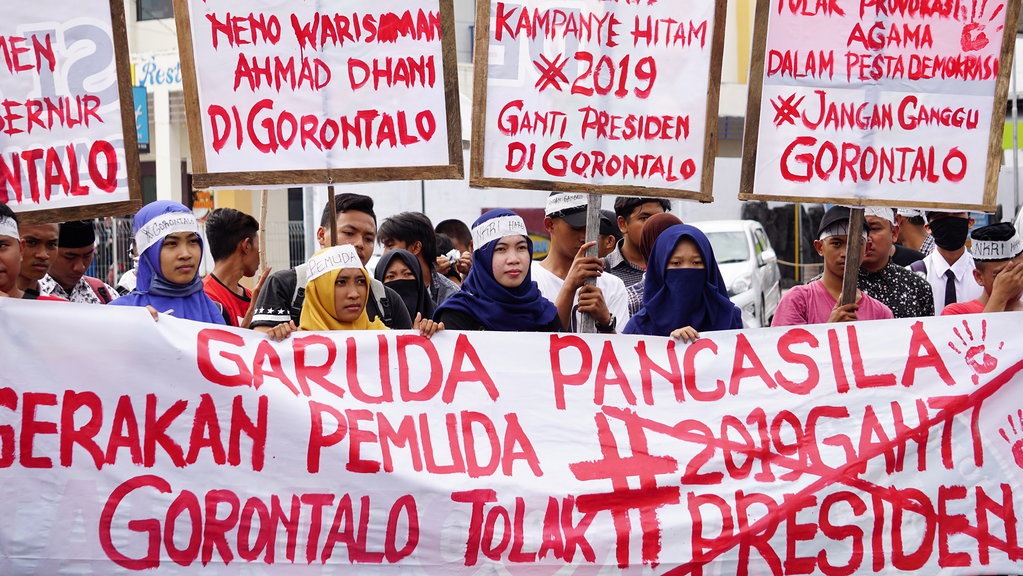 MEN
BERNUR
NTALO
Rest
NENO WARISMAN
AHMAD DHANI
DI GORONTALO
KAMPANYE HITAM
#2019
GANTI PRESIDEN
DI GORONTALO
TOLAK PROVOKASI
AGAMA
DALAM PESTA DEMOKRASI
#JANGAN GANGGU
GORONTALO
#GORONTALO
PEMUDA
NKRI HARGA
NKRI HAR
GARUDA PANCASILA
GERAKAN PEMUDA #2019GANTI
GORONTALO TOLAK #PRESIDEN